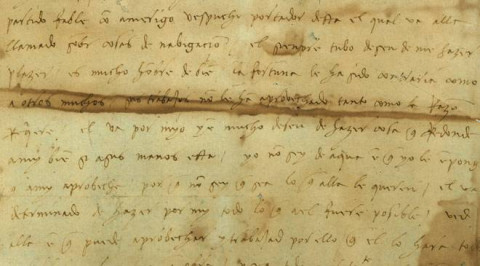 partido fable cō amerigo vespuchi portador desta el qual va alla
llamado sobr cosas de nabigaciō / el siempre tubo deseo de me hazer
plazer es mucho hōbre de biē la fortuna le ha sido contraria como
a otros muchos sus trabajos nō le ha aprobechado tanto como la razō
el va por myo y ē mucho deseo de hazer cosa q̄ redonde
a my biē si a sus manos esta / yo nō sey de aqua ē q̄ yo le ēponga
q̄ a my aprobeche por q̄ nō sey q̄ sea lo q̄ alla le querē / el va
determinado de hazer por my todo lo q̄ a el fuere posible / ved
alla ē q̄ puede aprobechar y trabajad por ello q̄ el lo hara